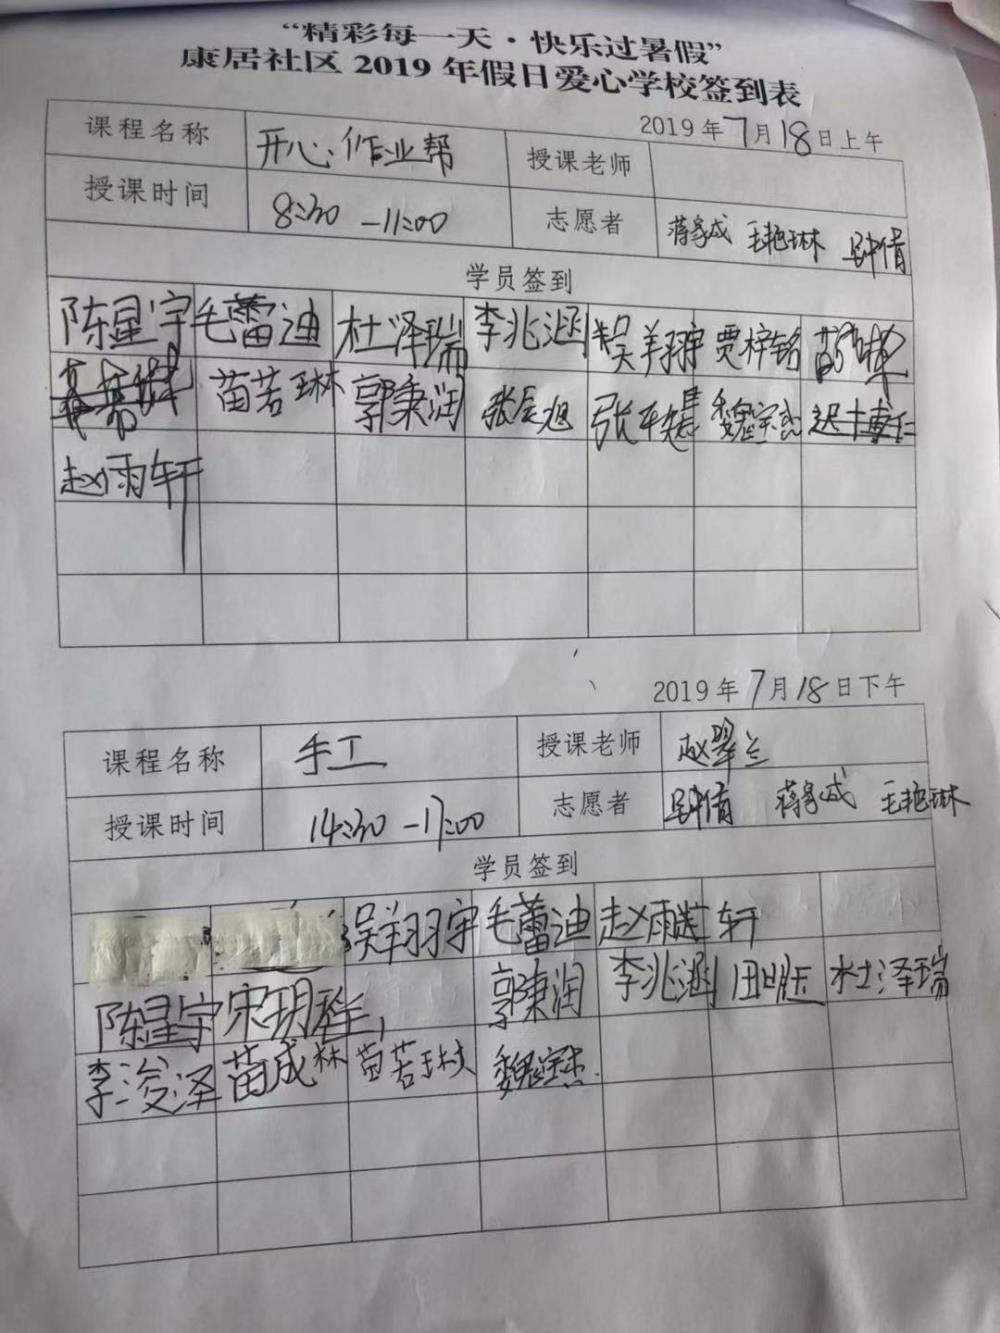 “精彩每一天·快乐过暑假”
康居社区 2019 年假日爱心学校签到表
2019年7月18日上午
课程名称 开心作业帮 授课老师
授课时间 8:30 -11:00 志愿者 蒋家成 毛艳琳 钟倩
学员签到
陈星宇 毛蕾迪 杜泽瑞 李兆涵 吴羽宇 贾梓铭
苗若琳 郭秉润 张辰旭 魏宝杰
赵雨轩
2019年7月18日下午
课程名称 手工 授课老师 赵翠兰
授课时间 14:30 -17:00 志愿者 钟倩 蒋家成 毛艳琳
学员签到
吴翔宇 毛蕾迪 赵雨轩
陈星宇 宋玥 郭秉润 李兆涵 杜泽瑞
李浚泽 苗成林 苗若琳 魏宝杰